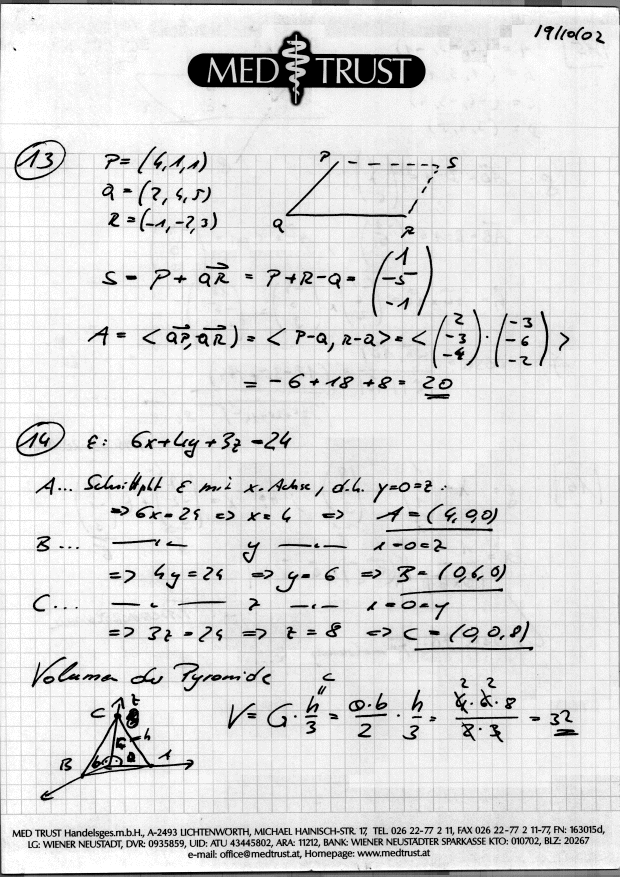 19/10/02
MED TRUST
13 P = (4,1,1)
Q = (2,4,5)
R = (-1,-2,3)
P S
Q R
S = P + QR = P+R-Q = (1 -5 -1)
A = < QP, QR > = < P-Q, R-Q > = < (2 -3 -4) · (-3 -6 -2) >
= -6+18+8 = 20
14 ε: 6x+4y+3z=24
A... Schnittpkt ε mit x-Achse, d.h. y=0=z:
=> 6x=24 => x=4 => A=(4,0,0)
B... —"— y —"— x=0=z
=> 4y=24 => y=6 => B=(0,6,0)
C... —"— z —"— x=0=y
=> 3z=24 => z=8 => C=(0,0,8)
Volumen der Pyramide
V = G · h/3 = a·b/2 · h/3 = 4·6·8/2·3 = 32
C z
h
B b a A
MED TRUST Handelsges.m.b.H., A-2493 LICHTENWÖRTH, MICHAEL HAINISCH-STR. 17, TEL. 026 22-77 2 11, FAX 026 22-77 2 11-77, FN: 163015d,
LG: WIENER NEUSTADT, DVR: 0935859, UID: ATU 43445802, ARA: 11212, BANK: WIENER NEUSTÄDTER SPARKASSE KTO: 010702, BLZ: 20267
e-mail: office@medtrust.at, Homepage: www.medtrust.at